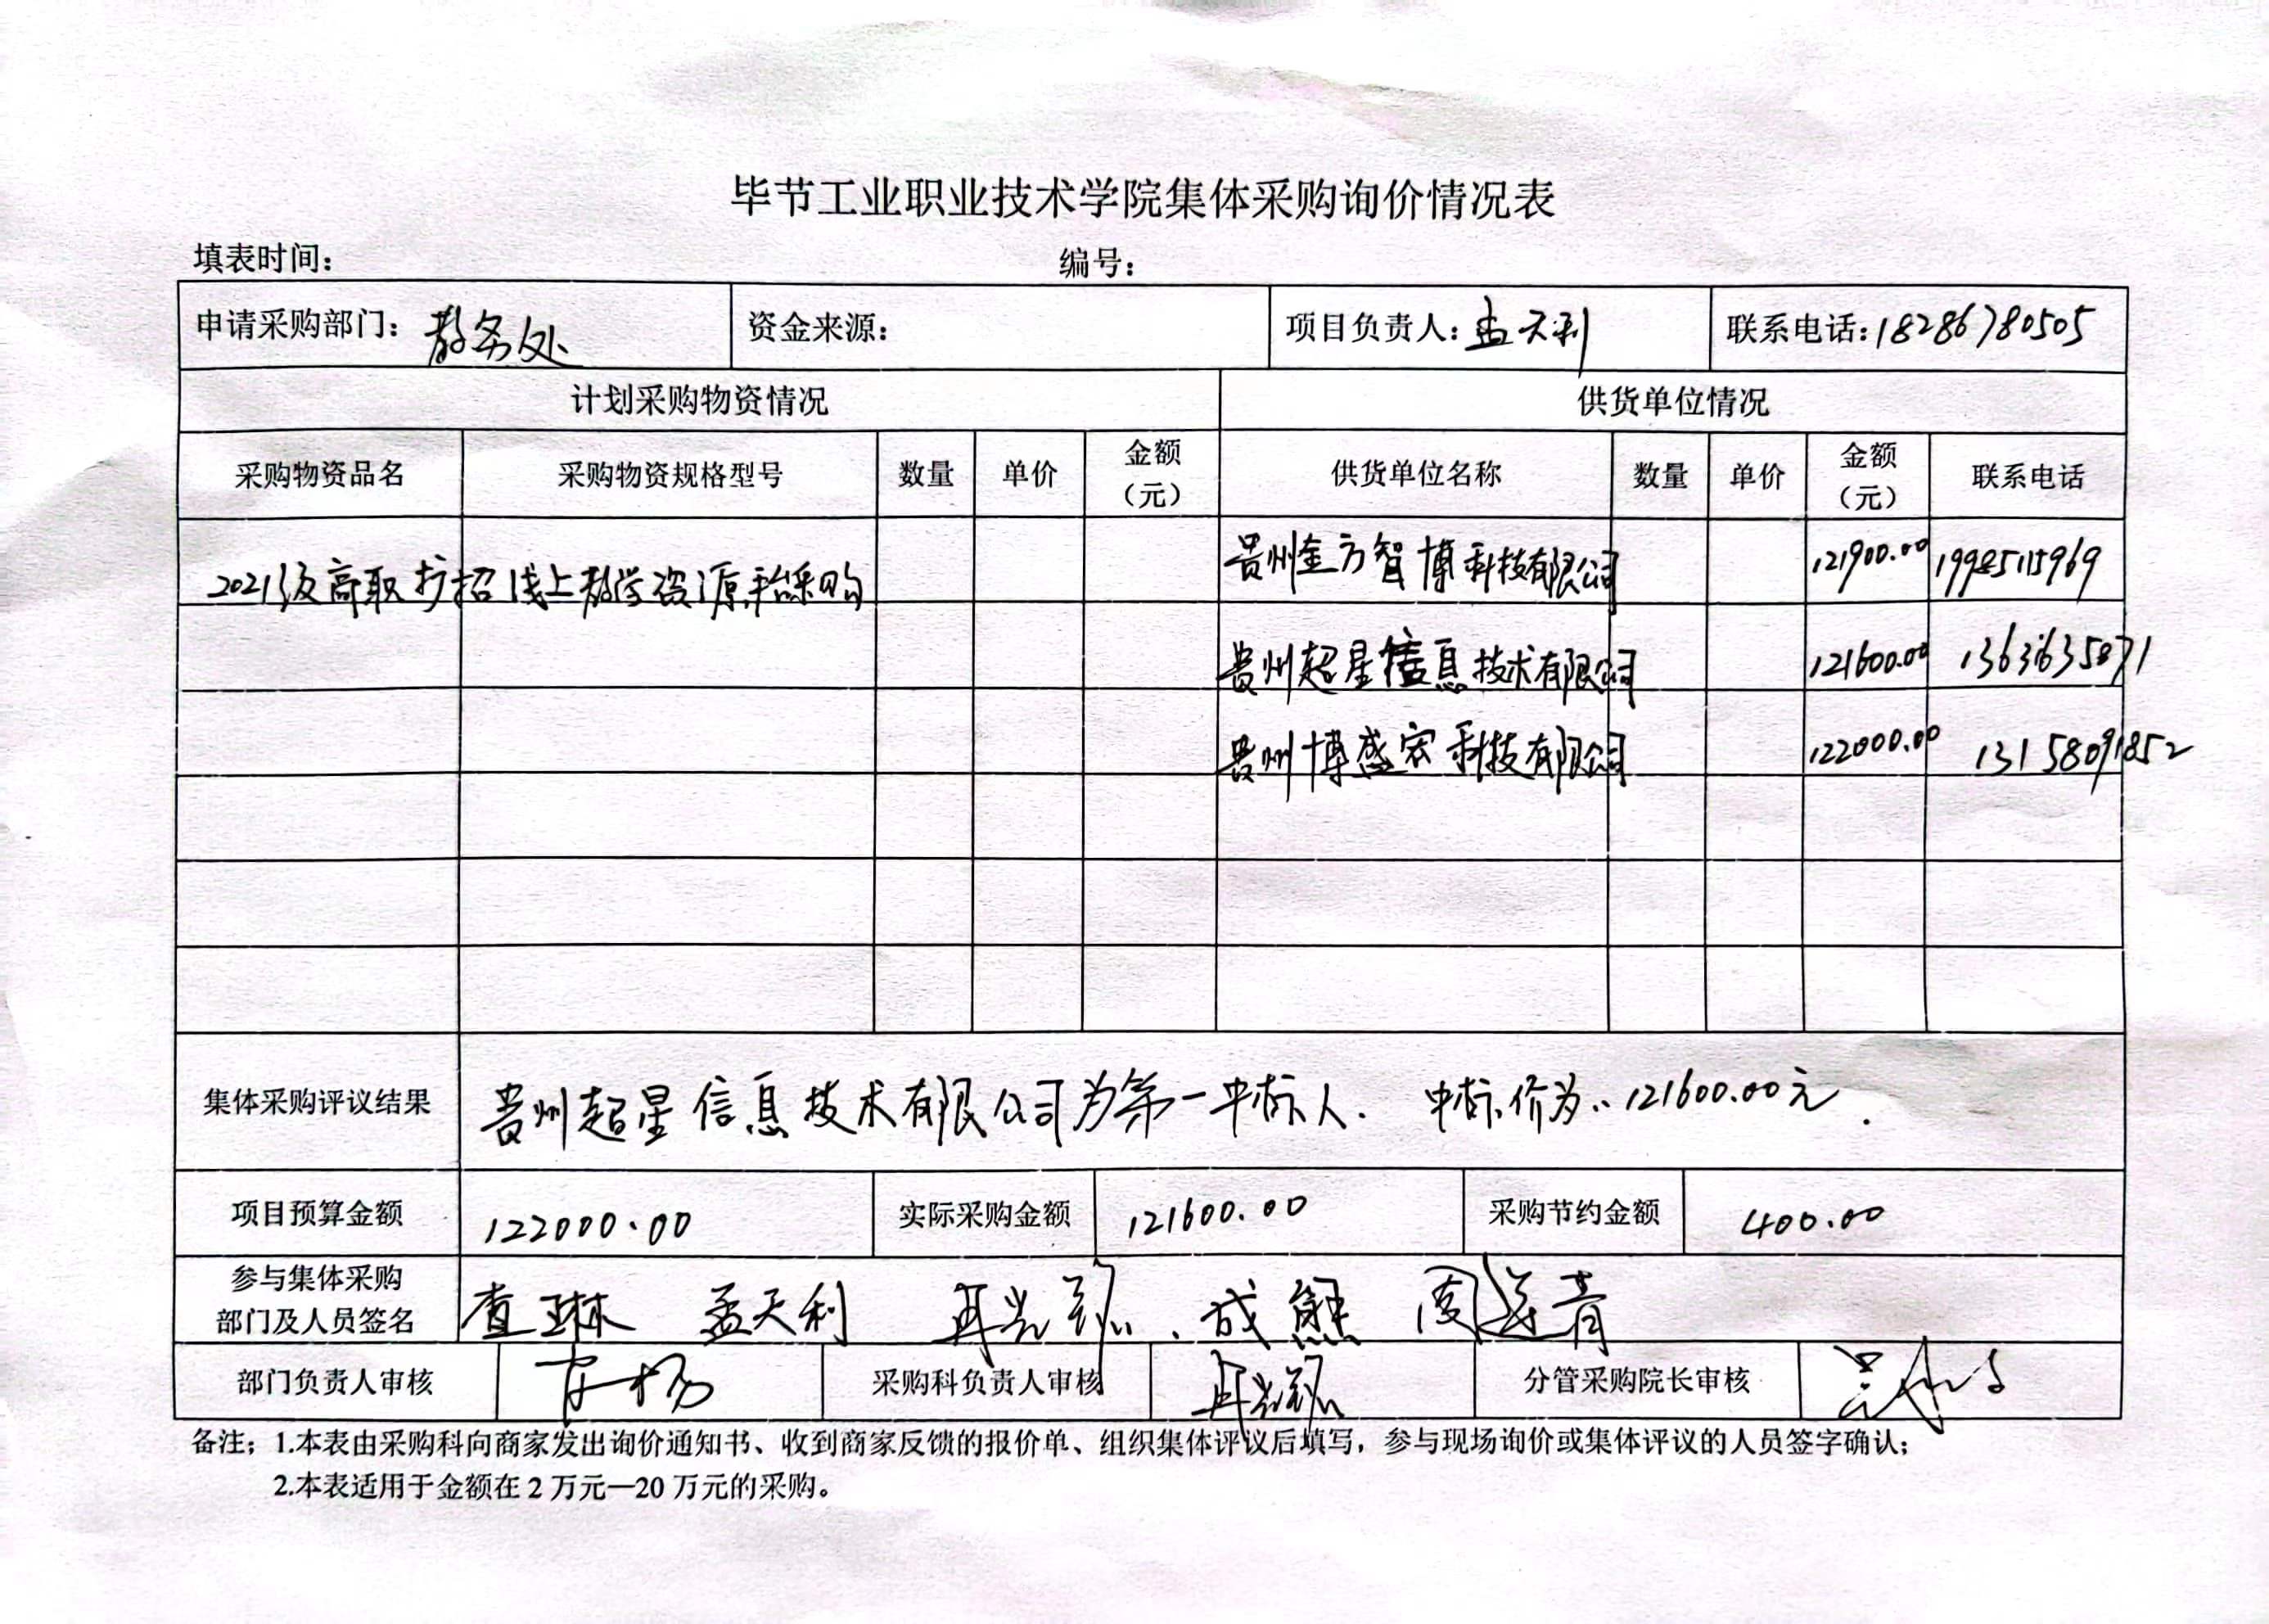 毕节工业职业技术学院集体采购询价情况表
填表时间： 编号：
申请采购部门：教务处 资金来源： 项目负责人：孟天利 联系电话：18286780505
计划采购物资情况 供货单位情况
采购物资品名 采购物资规格型号 数量 单价 金额（元） 供货单位名称 数量 单价 金额（元） 联系电话
2021级高职扩招线上教学资源平台采购 贵州金方智博科技有限公司 121900.00 19985115969
贵州超星信息技术有限公司 121600.00 13636135871
贵州博盛宏科技有限公司 122000.00 13158091852
集体采购评议结果 贵州超星信息技术有限公司为第一中标人. 中标价为：121600.00元.
项目预算金额 122000.00 实际采购金额 121600.00 采购节约金额 400.00
参与集体采购
部门及人员签名 查琳 孟天利 成熊
部门负责人审核 采购科负责人审核 分管采购院长审核
备注：1.本表由采购科向商家发出询价通知书、收到商家反馈的报价单、组织集体评议后填写，参与现场询价或集体评议的人员签字确认；
2.本表适用于金额在2万元—20万元的采购。